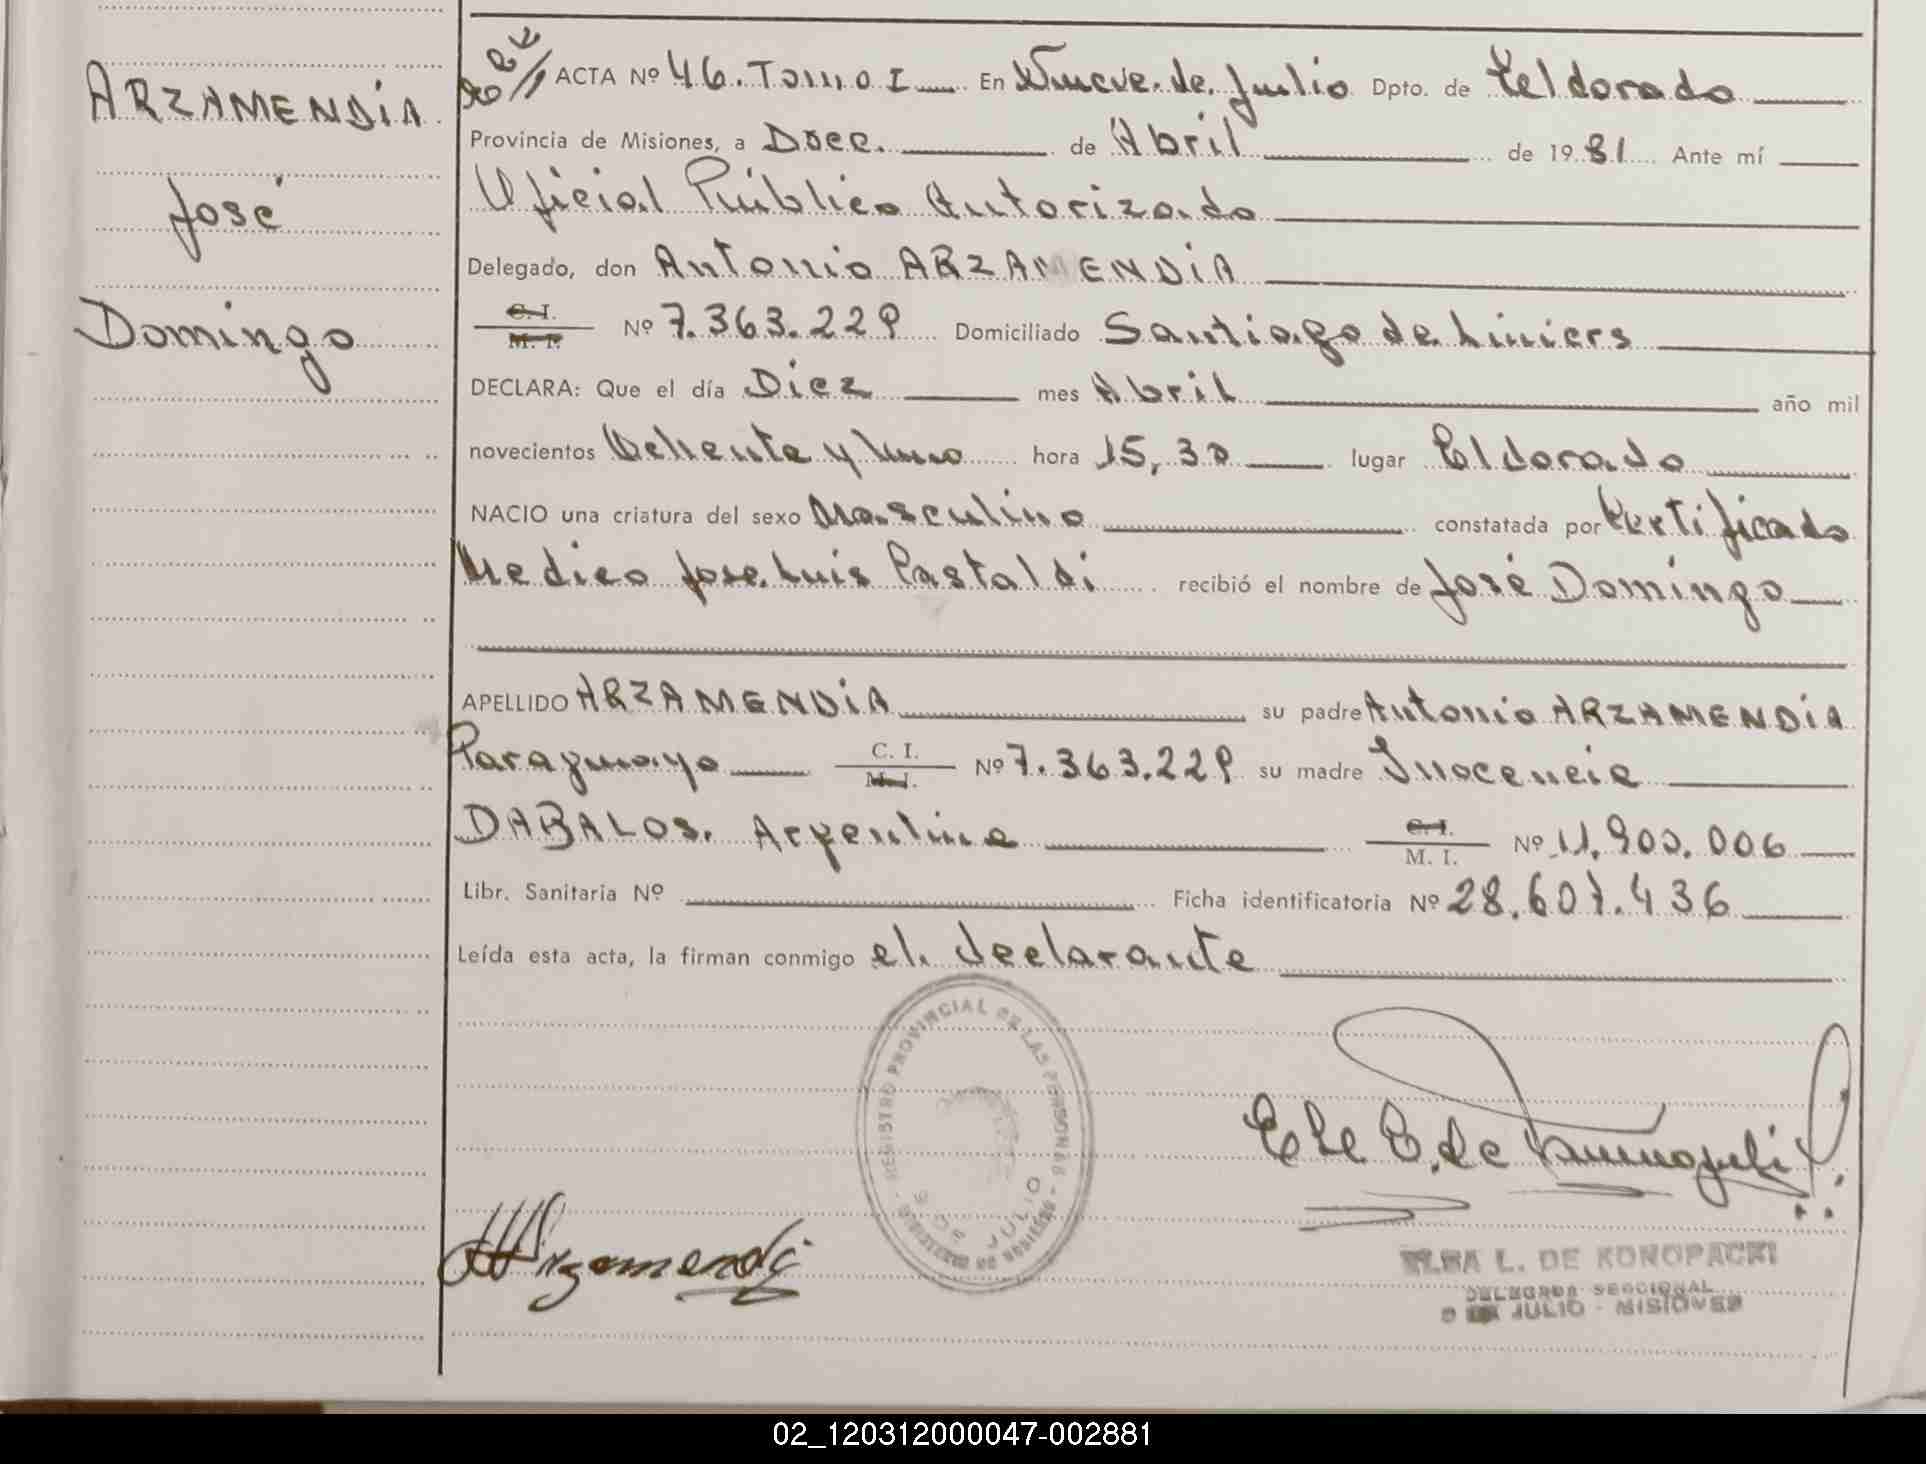 ARZAMENDÍA
José
Domingo
ACTA Nº 46. Tomo I En Nueve de Julio Dpto. de Eldorado
Provincia de Misiones, a Doce. de Abril de 1981 Ante mí
Oficial Público Autorizado
Delegado, don Antonio ARZAMENDÍA
C. I.
M. I.
Nº 7.363.229 Domiciliado Santiago de Liniers
DECLARA: Que el día Diez mes Abril año mil
novecientos Ochenta y Uno hora 15,30 lugar Eldorado
NACIO una criatura del sexo Masculino constatada por Certificado
Medico Jose Luis Castaldi recibió el nombre de José Domingo
APELLIDO ARZAMENDÍA su padre Antonio ARZAMENDÍA
Paraguayo C. I. Nº 7.363.229 su madre Inocencia
M. I.
DABALOS. Argentina C. I. Nº 11.900.006
M. I.
Libr. Sanitaria Nº Ficha identificatoria Nº 28.601.436
Leída esta acta, la firman conmigo el declarante
REGISTRO PROVINCIAL DE LAS PERSONAS
9 DE JULIO
Arzamendi
L. DE KONOPACKI
DELEGADA SECCIONAL
9 DE JULIO - MISIONES
02_120312000047-002881